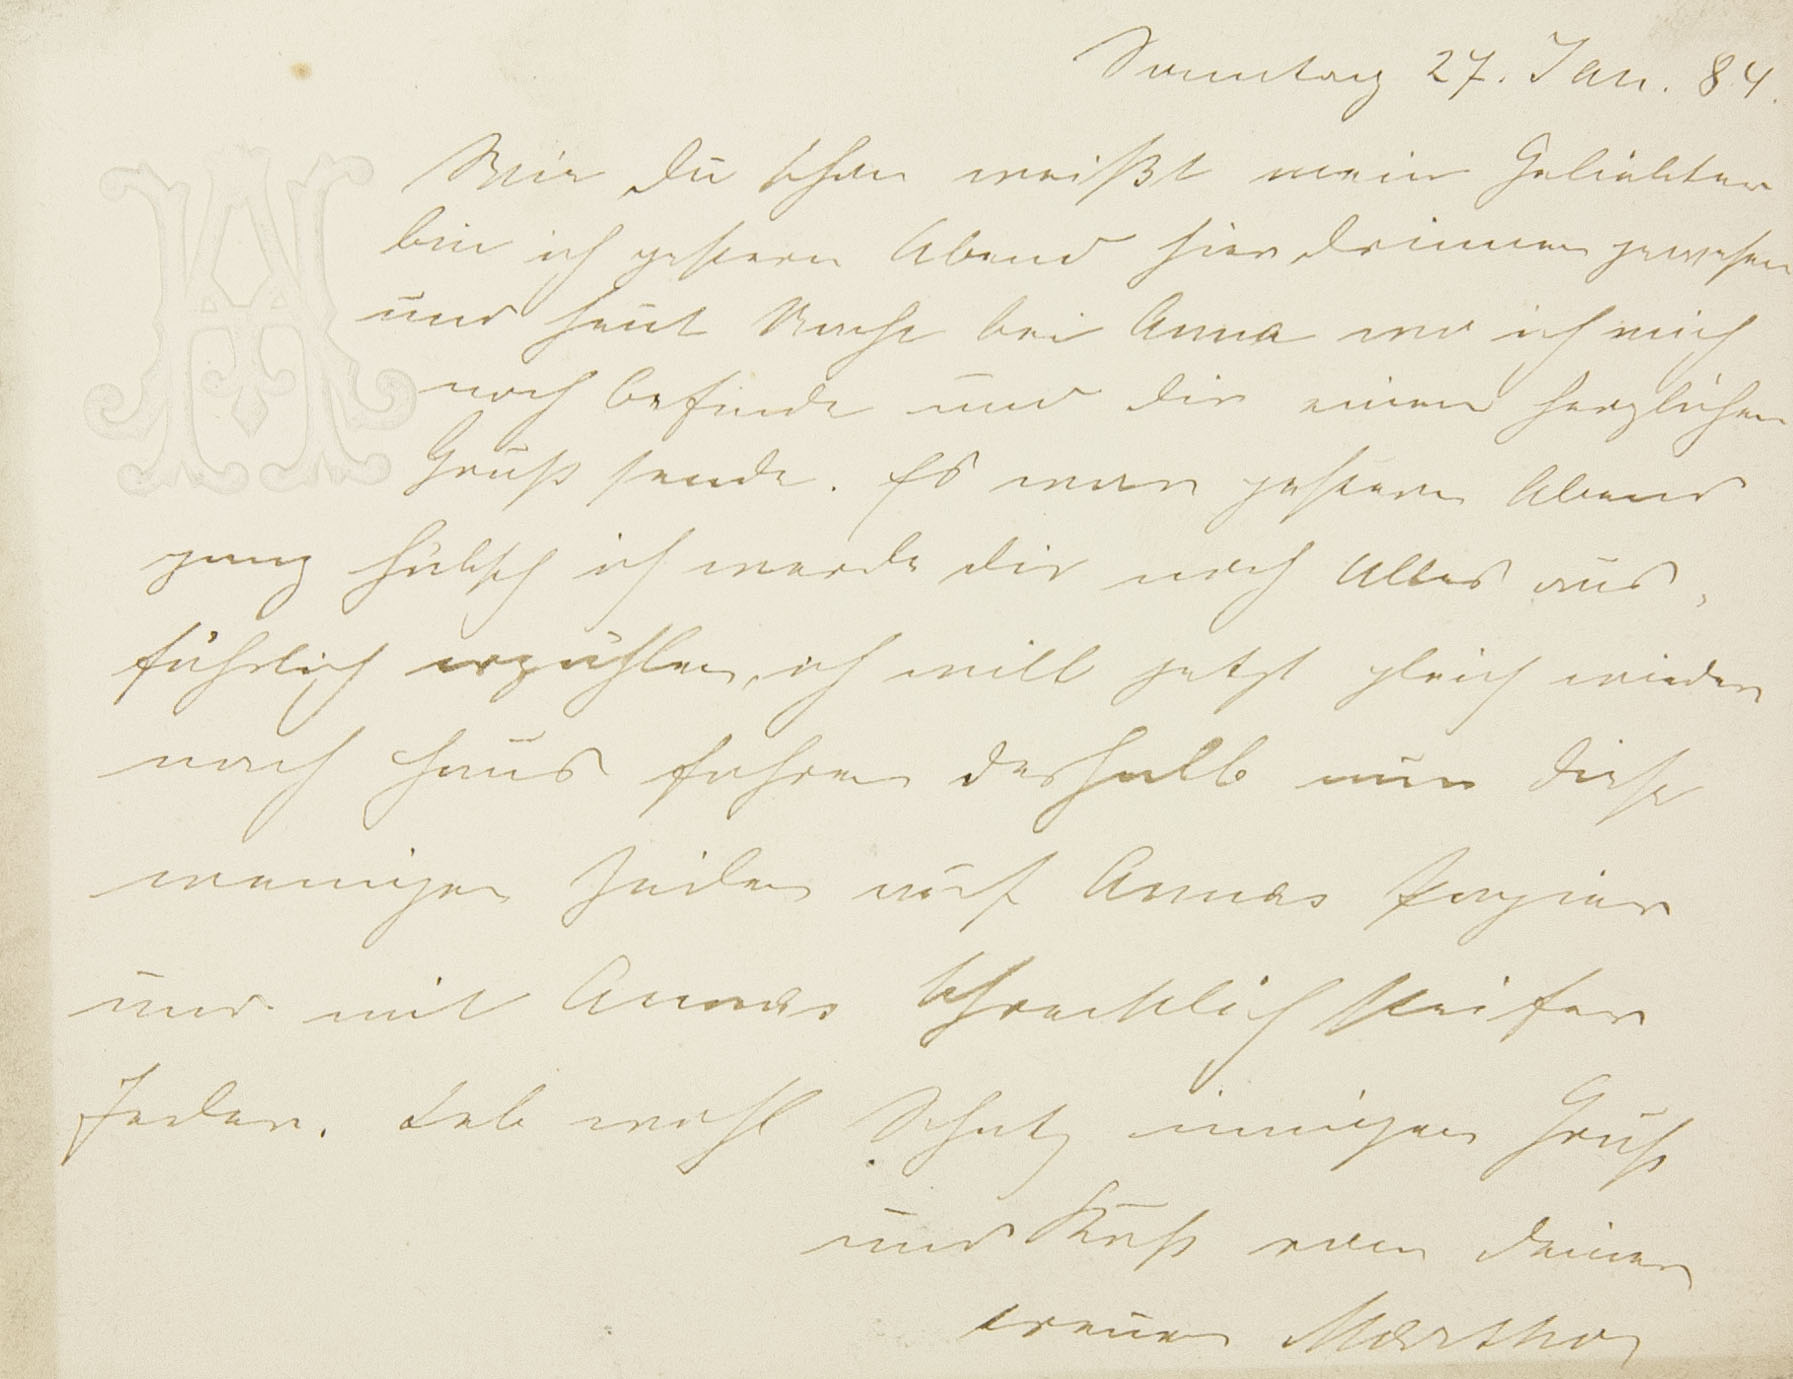 Sonntag 27. Jan. 84.
Wie du schon weißt mein Geliebter
bin ich gestern Abend hier drinnen gewesen
und heut Nacht bei Anna wo ich mich
noch befinde und dir einen herzlichen
Gruß sende. Es war gestern Abend
ganz hübsch ich werde dir noch Alles aus-
führlich erzählen, ich will jetzt gleich wieder
nach Haus fahren deshalb nur diese
wenigen Zeilen auf Annas Papier
und mit Annas schrecklich steifer
Feder. Leb wohl Schatz innigen Gruß
und Kuß von deiner
treuen Martha